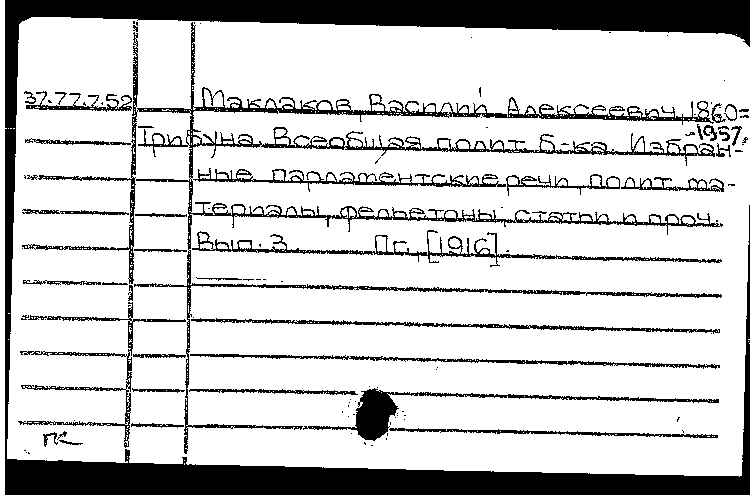 37.77.7.52 Маклаков, Василий Алексеевич, 1860=
-1957.
Трибуна. Всеобщая полит. б-ка. Избран-
ные парламентские речи, полит. ма-
териалы, фельетоны, статьи и проч.
Вып. 3. Пг., [1916].
ПК